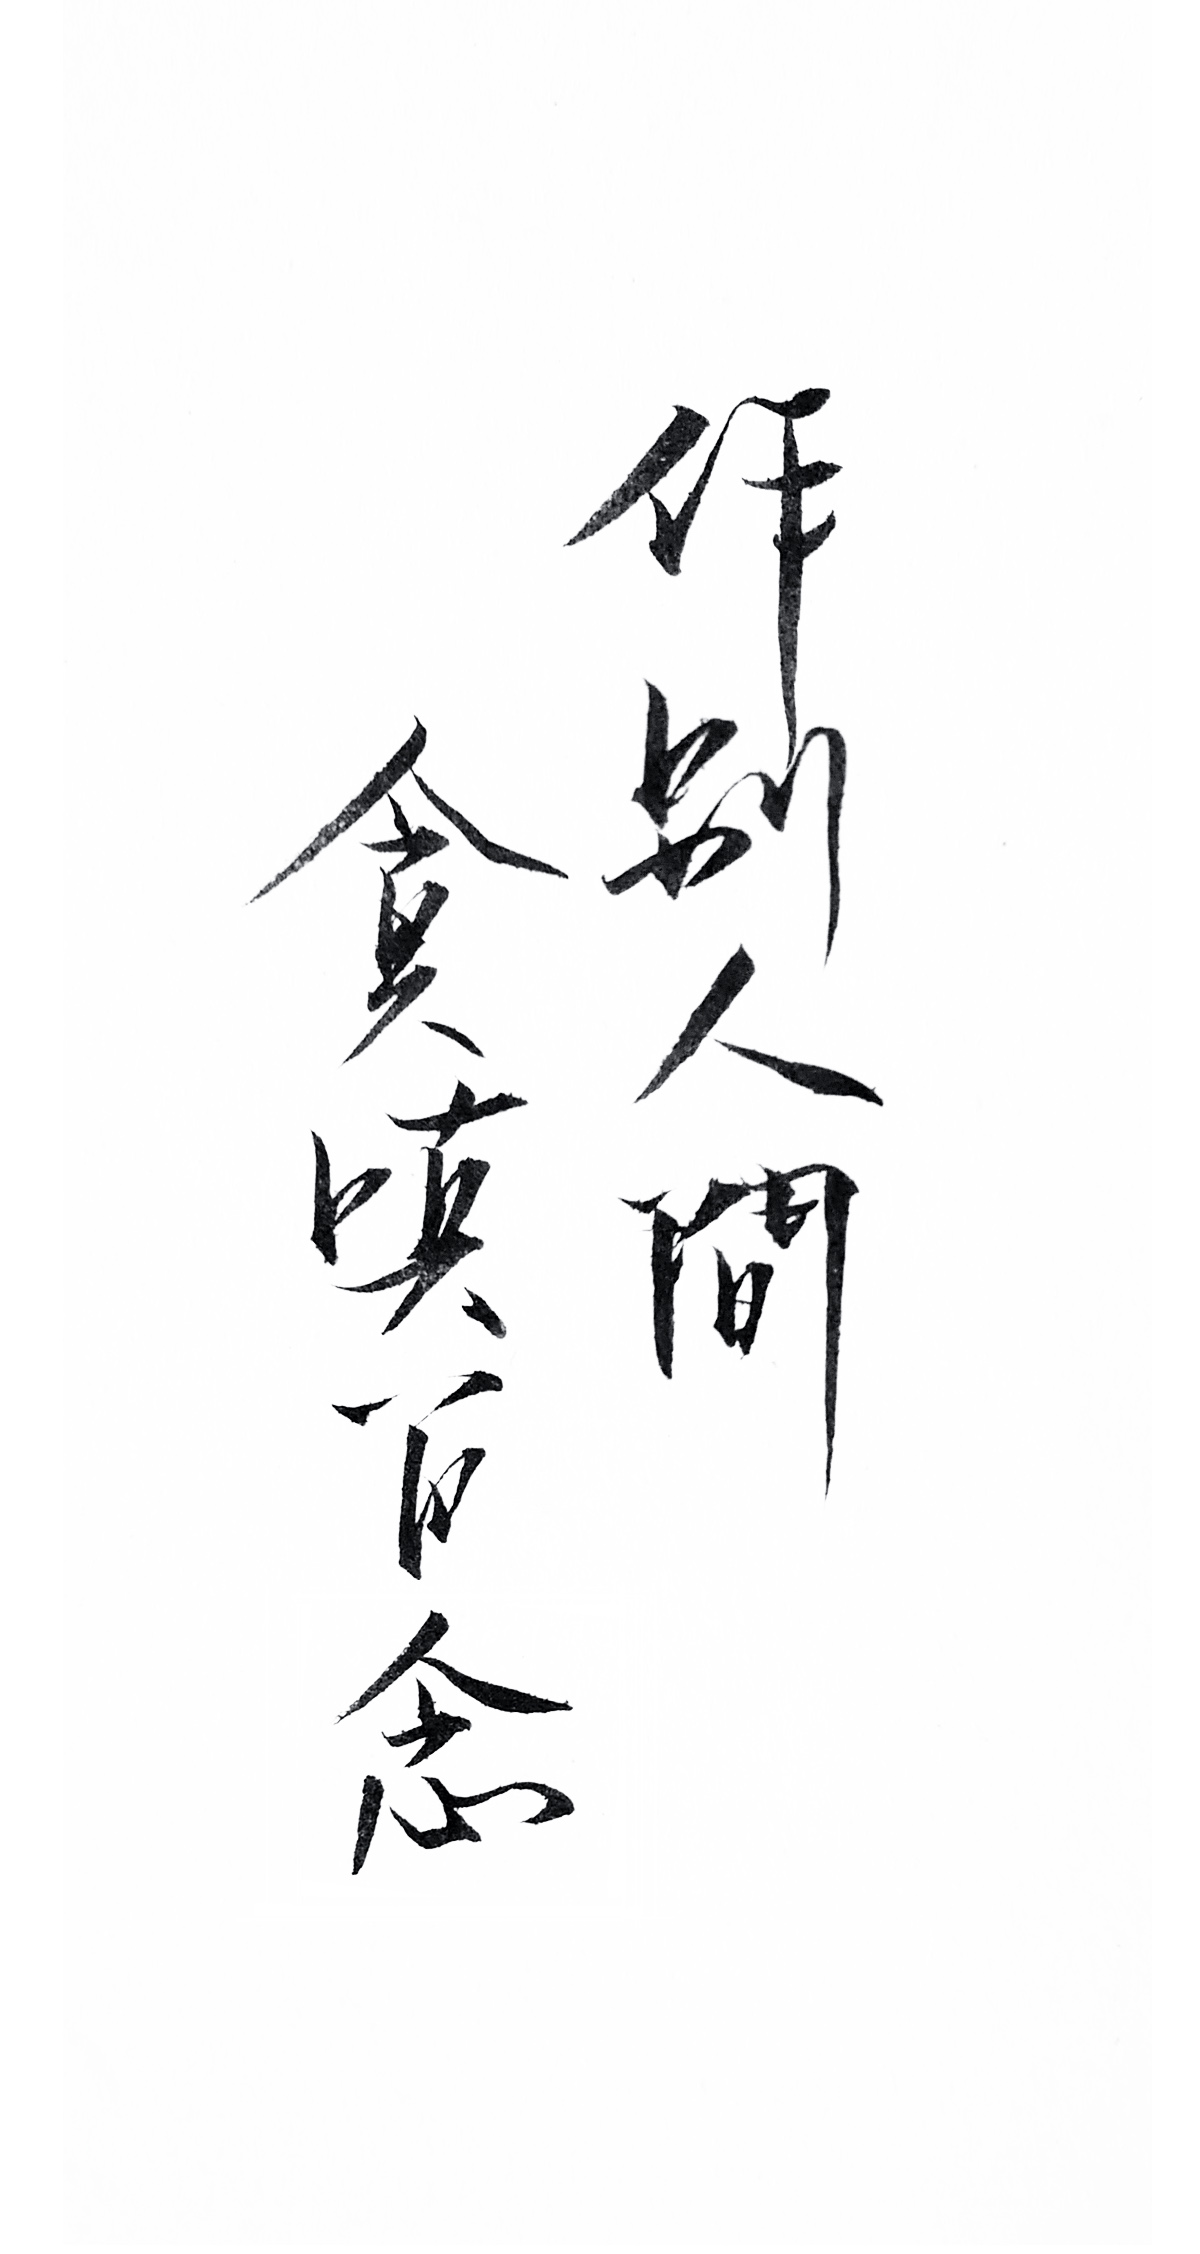 作别人間
貪嗔百念